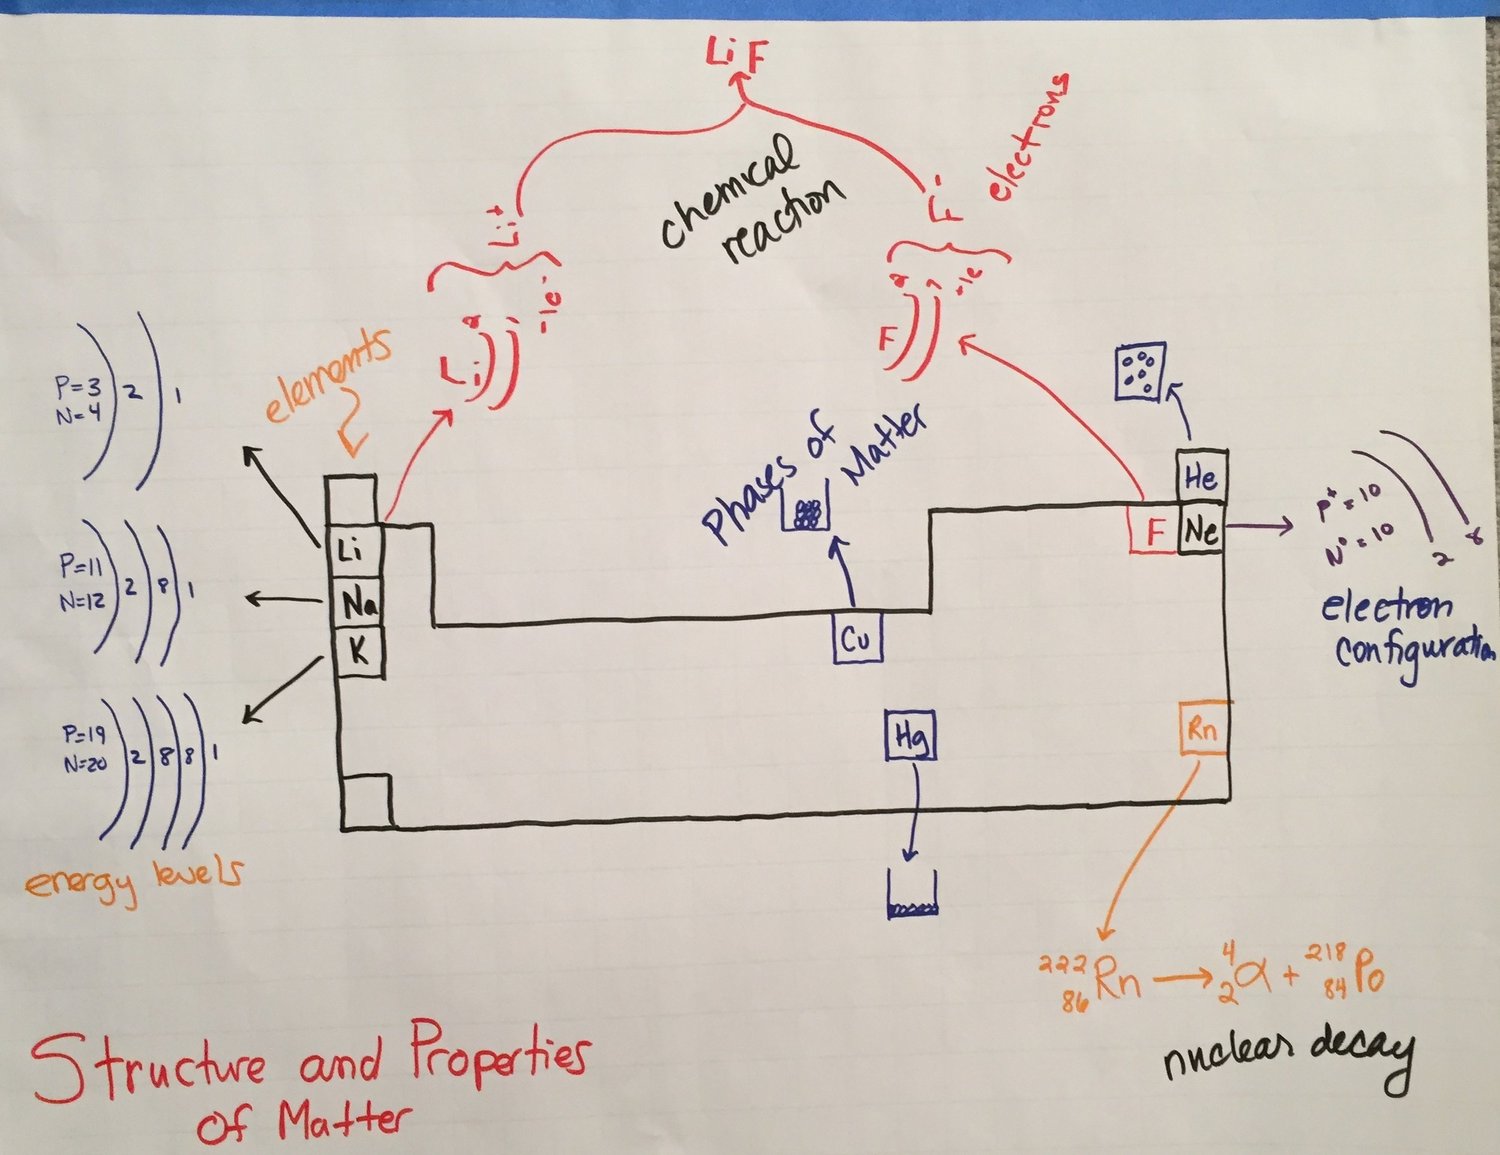 LiF
electrons
chemical
reaction
Li+
F-
Li 2 1 -1e-
F 2 7 -1e
elements
P=3
N=4
2 1
P=11
N=12
2 8 1
P=19
N=20
2 8 8 1
energy levels
Li
Na
K
Phases of
Matter
Cu
Hg
He
F
Ne
Rn
P+ = 10
N° = 10
2 8
electron
configuration
222 86 Rn → 4 2 α + 218 84 Po
nuclear decay
Structure and Properties
of Matter